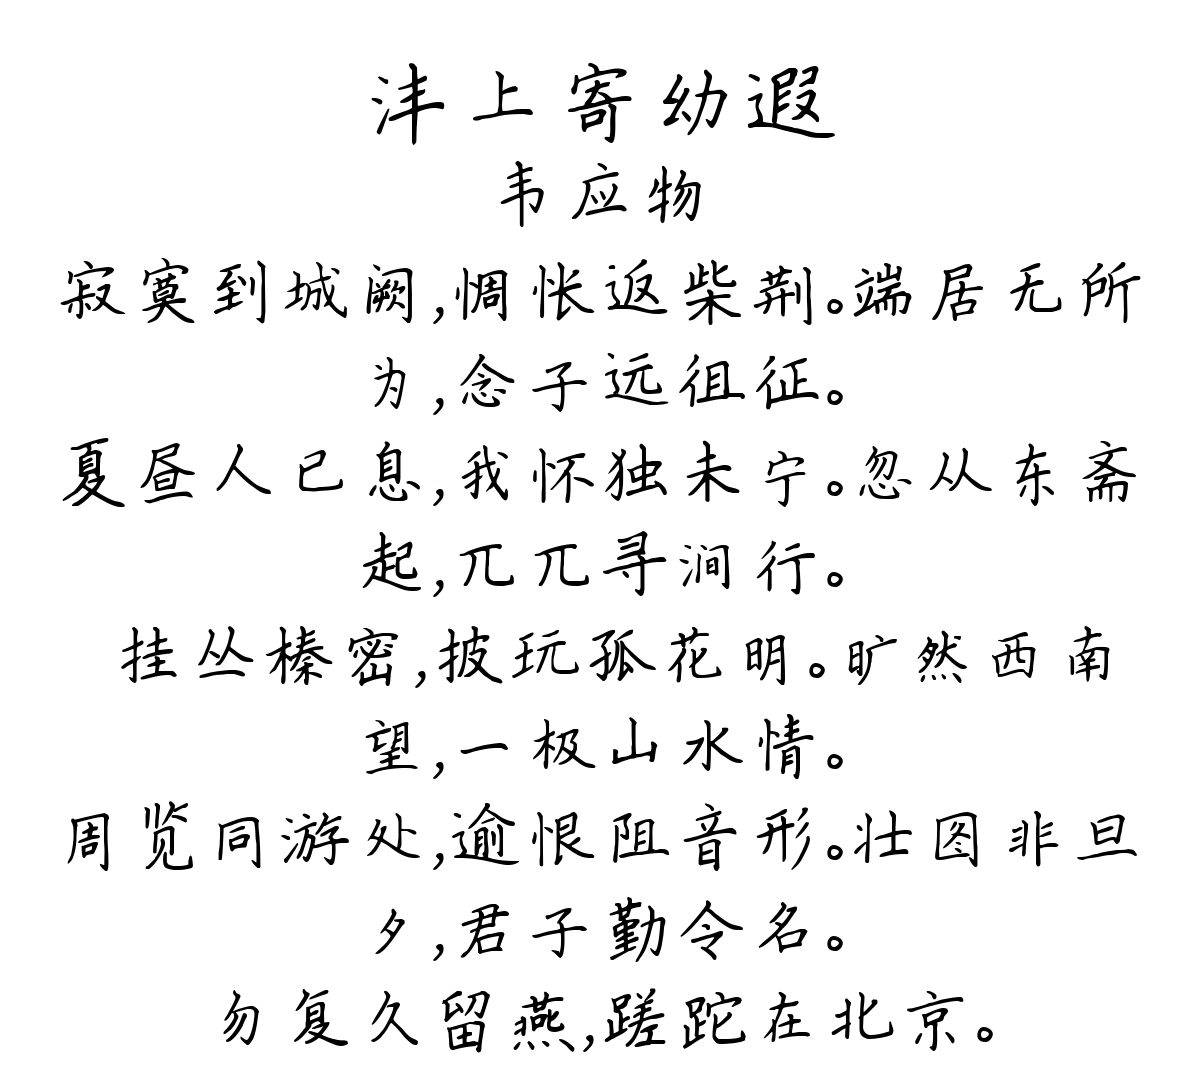 沣上寄幼遐
韦应物
寂寞到城阙,惆怅返柴荆。端居无所
为,念子远徂征。
夏昼人已息,我怀独未宁。忽从东斋
起,兀兀寻涧行。
挂丛榛密,披玩孤花明。旷然西南
望,一极山水情。
周览同游处,逾恨阻音形。壮图非旦
夕,君子勤令名。
勿复久留燕,蹉跎在北京。